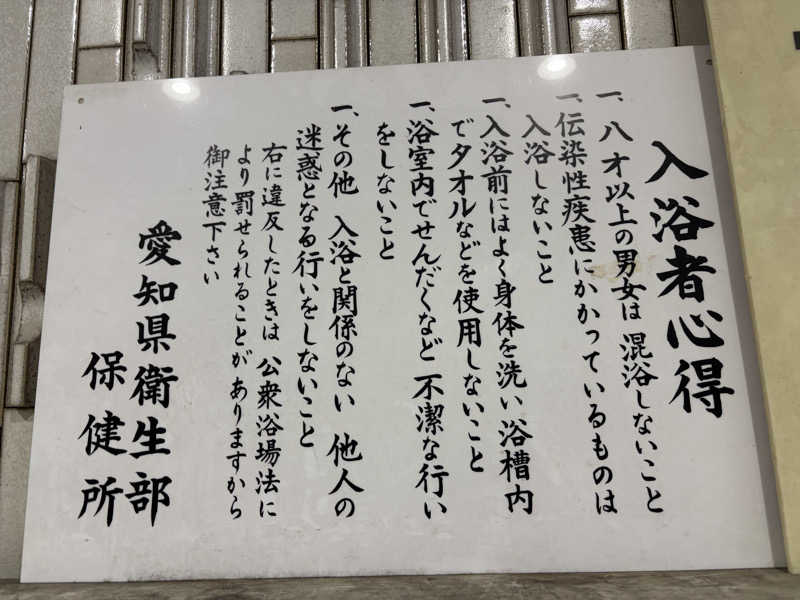 入浴者心得
一、八才以上の男女は 混浴しないこと
一、伝染性疾患にかかっているものは
入浴しないこと
一、入浴前にはよく身体を洗い浴槽内
でタオルなどを使用しないこと
一、浴室内でせんだくなど 不潔な行い
をしないこと
一、その他 入浴と関係のない 他人の
迷惑となる行いをしないこと
右に違反したときは 公衆浴場法に
より罰せられることが ありますから
御注意下さい
愛知県衛生部
保健所